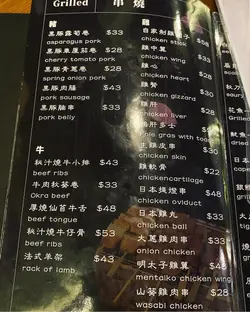 Grilled 串燒
豬
黑豚露筍卷 $33
asparagus pork
黑豚車厘茄卷 $28
cherry tomato pork
黑豚青蔥卷 $28
spring onion pork
黑豚肉腸 $43
pork sausage
黑豚腩串 $33
pork belly
牛
秘汁燒牛小排 $43
beef ribs
牛肉秋葵卷 $33
Okra beef
厚燒仙台牛舌 $48
beef tongue
秘汁燒牛仔骨 $53
beef ribs
法式羊架 $43
rack of lamb
雞
自家制雞子 $58
chicken stick
雞中翼
chicken wing $33
雞心
chicken heart $28
雞腎
chicken gizzard $30
雞肝
chicken liver
foie gras with toast
雞皮串
chicken skin $28
雞軟骨 $22
chickencartilage
日本提燈串 $48
chicken oviduct
日本雞丸 $33
chicken ball
大蔥雞肉串 $28
onion chicken
明太子雞翼 $48
mentaiko chicken wing
山葵雞肉串 $28
wasabi chicken